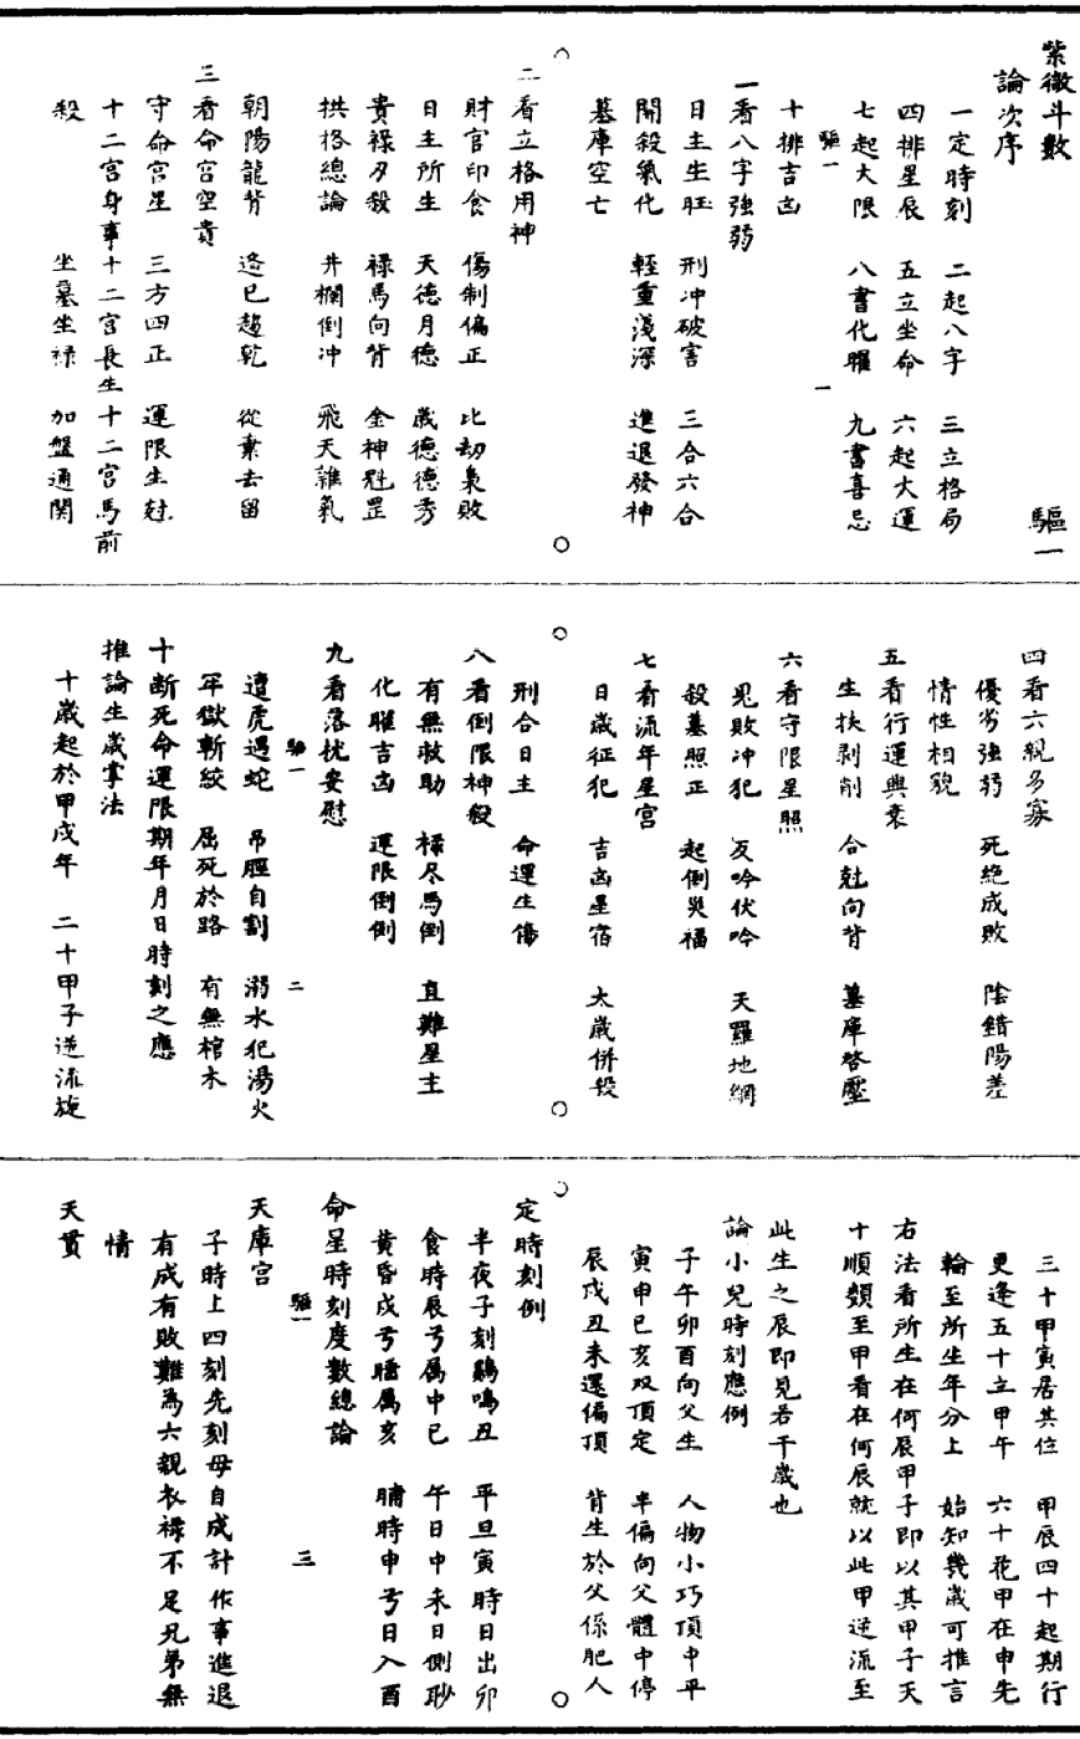 紫微斗數 驅一
論次序
一定時刻 二起八字 三立格局
四排星辰 五立坐命 六起大運
七起大限 八書化曜 九書喜忌
驅一 一
十排吉凶
一看八字強弱
日主生旺 刑冲破害 三合六合
開殺氣化 輕重淺深 進退發神
墓庫空亡
二看立格用神
財官印食 傷制偏正 比劫梟敗
日主所生 天德月德 歲德德秀
貴祿刃殺 祿馬向背 金神魁罡
拱格總論 井欄倒冲 飛天雜氣
朝陽龍背 逢巳趨乾 從棄去留
三看命宮空貴
守命宮星 三方四正 運限生尅
十二宮身事十二宮長生十二宮馬前
殺 坐墓坐祿 加盤通関
四看六親多寡
優劣強弱 死絶成敗 陰錯陽差
情性相貌
五看行運興衰
生扶剥削 合尅向背 墓庫啓壓
六看守限星照
見敗冲犯 反吟伏吟 天羅地網
殺墓照正 起倒災福
七看流年星宮
日歲征犯 吉凶星宿 太歲併殺
刑合日主 命運生傷
八看倒限神殺
有無救助 祿尽馬倒 直難星主
化曜吉凶 運限倒倒
九看落枕安慰
驅一 二
遭虎遇蛇 吊脛自割 溺水犯湯火
牢獄斬絞 屈死於路 有無棺木
十断死命運限期年月日時刻之應
推論生歲掌法
十歲起於甲戌年 二十甲子逆流旋
三十甲寅居其位 甲辰四十起期行
更逢五十立甲午 六十花甲在申先
輪至所生年分上 始知幾歲可推言
右法看所生在何辰甲子即以其甲子天
十順類至甲看在何辰就以此甲逆流至
此生之辰即見若干歲也
論小兒時刻應例
子午卯酉向父生 人物小巧頂中平
寅申巳亥双頂定 半偏向父體中停
辰戌丑未還偏頂 背生於父係肥人
定時刻例
半夜子刻鷄鳴丑 平旦寅時日出卯
食時辰兮属中巳 午日中未日側眇
黄昏戌兮睡属亥 晡時申兮日入酉
命星時刻度數總論
驅一 三
天庫宮
子時上四刻先刻母自成計作事進退
有成有敗難為六親衣祿不足兄弟無
情
天貫